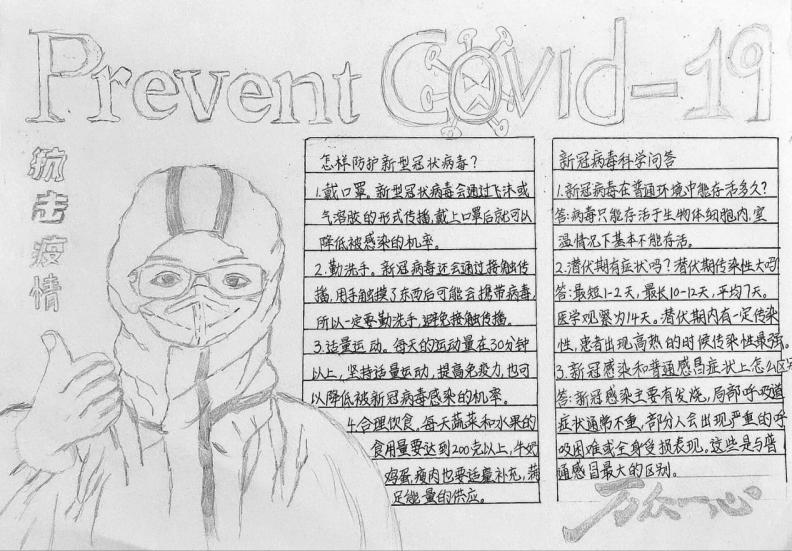 Prevent Covid-19
抗击疫情
怎样防护新型冠状病毒?
1.戴口罩。新型冠状病毒会通过飞沫或
气溶胶的形式传播,戴上口罩后就可以
降低被感染的机率。
2.勤洗手。新冠病毒还会通过接触传
播,用手触摸了东西后可能会携带病毒,
所以一定要勤洗手,避免接触传播。
3.适量运动。每天的运动量在30分钟
以上,坚持适量运动,提高免疫力,也可
以降低被新冠病毒感染的机率。
4.合理饮食。每天蔬菜和水果的
食用量要达到200克以上,牛奶
鸡蛋,瘦肉也要适量补充,满
足能量的供应。
新冠病毒科学问答
1.新冠病毒在普通环境中能存活多久?
答:病毒只能存活于生物体细胞内,室
温情况下基本不能存活。
2.潜伏期有症状吗?潜伏期传染性大吗
答:最短1-2天,最长10-12天,平均7天。
医学观察为14天。潜伏期内有一定传染
性,患者出现高热的时候传染性最强。
3.新冠感染和普通感冒症状上怎么区
答:新冠感染主要有发烧,局部呼吸道
症状通常不重,部分人会出现严重的呼
吸困难或全身受损表现。这些是与普
通感冒最大的区别。
万众一心